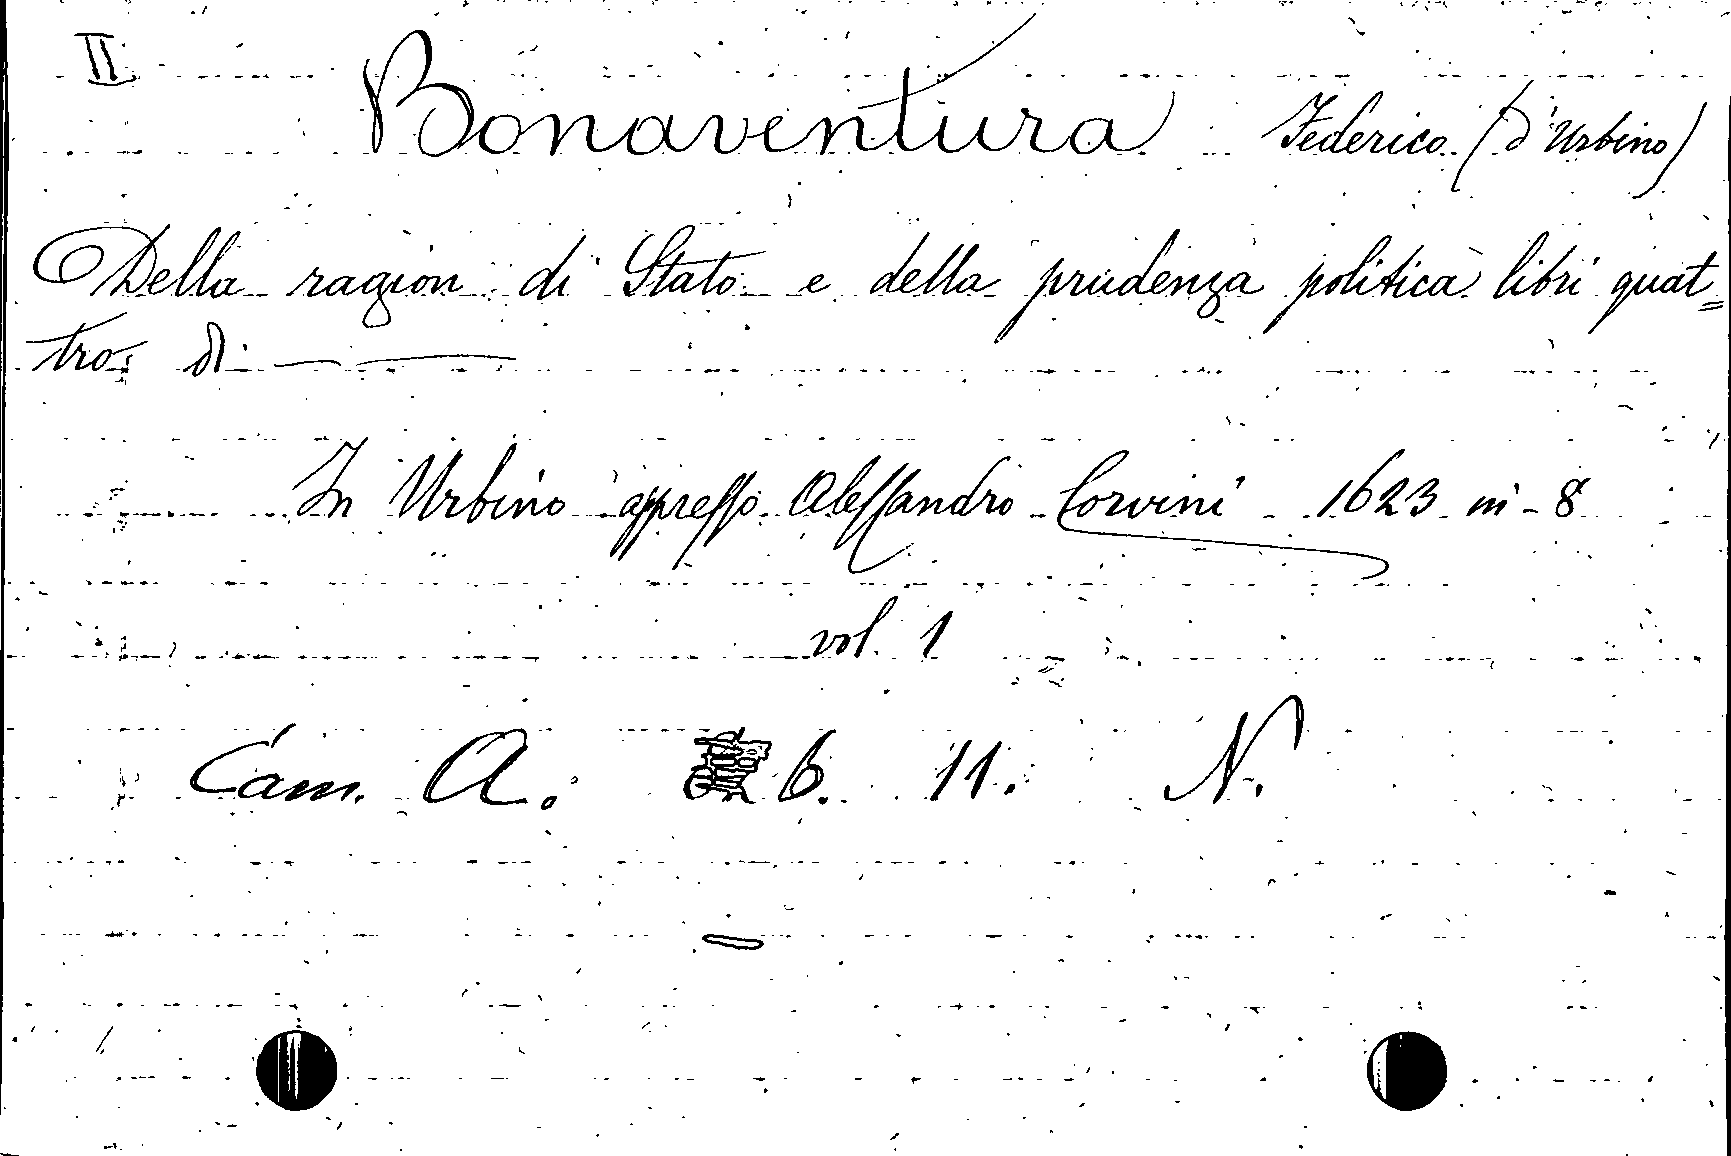 II
Bonaventura Federico (d'Urbino)
Della ragion di Stato e della prudenza politica libri quat=
tro di ——
In Urbino appresso Alessandro Corvini 1623 in-8
vol. 1
Cam. A. 6. 11. N.